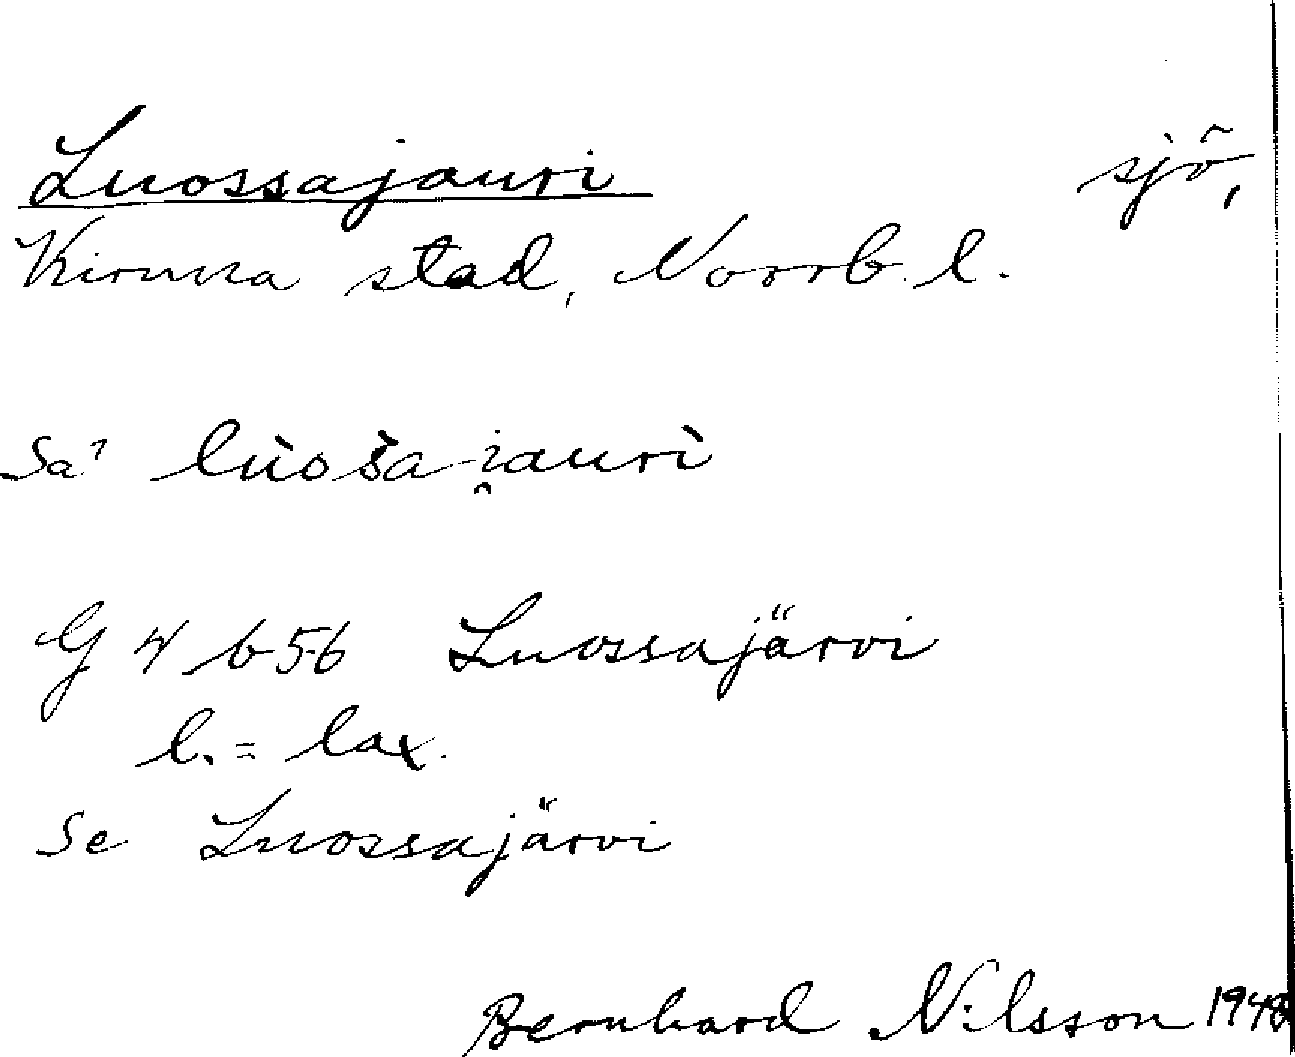 Luossajauri sjö,
Kiruna stad, Norrb. l.
Sa' lùòs̀a-i̯aurì
G 4 b 56 Luossajärvi
l. = lax.
Se Luossajärvi
Bernhard Nilsson